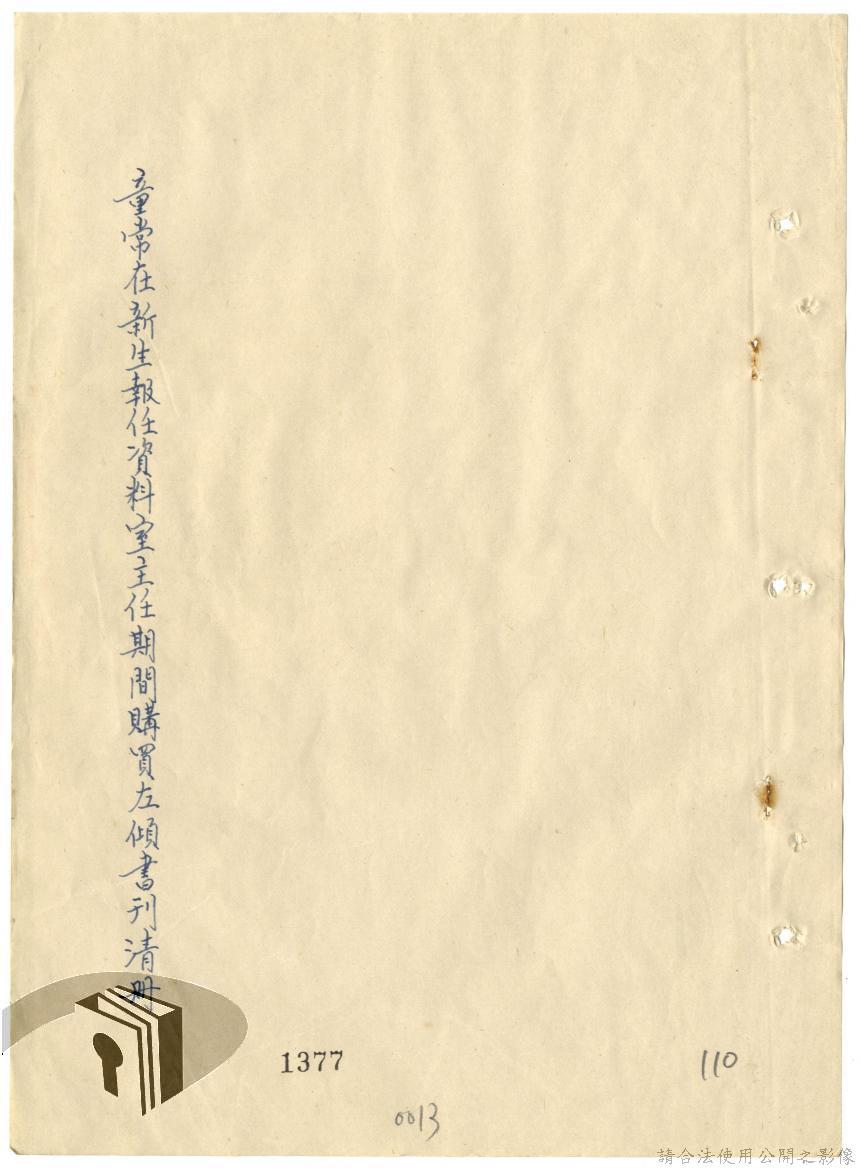 童常在新生報任資料室主任期間購買左傾書刊清册
1377
110
0013
請合法使用公開之影像